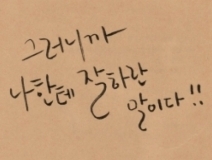 그러니까
나한테 잘하란
말이다!!